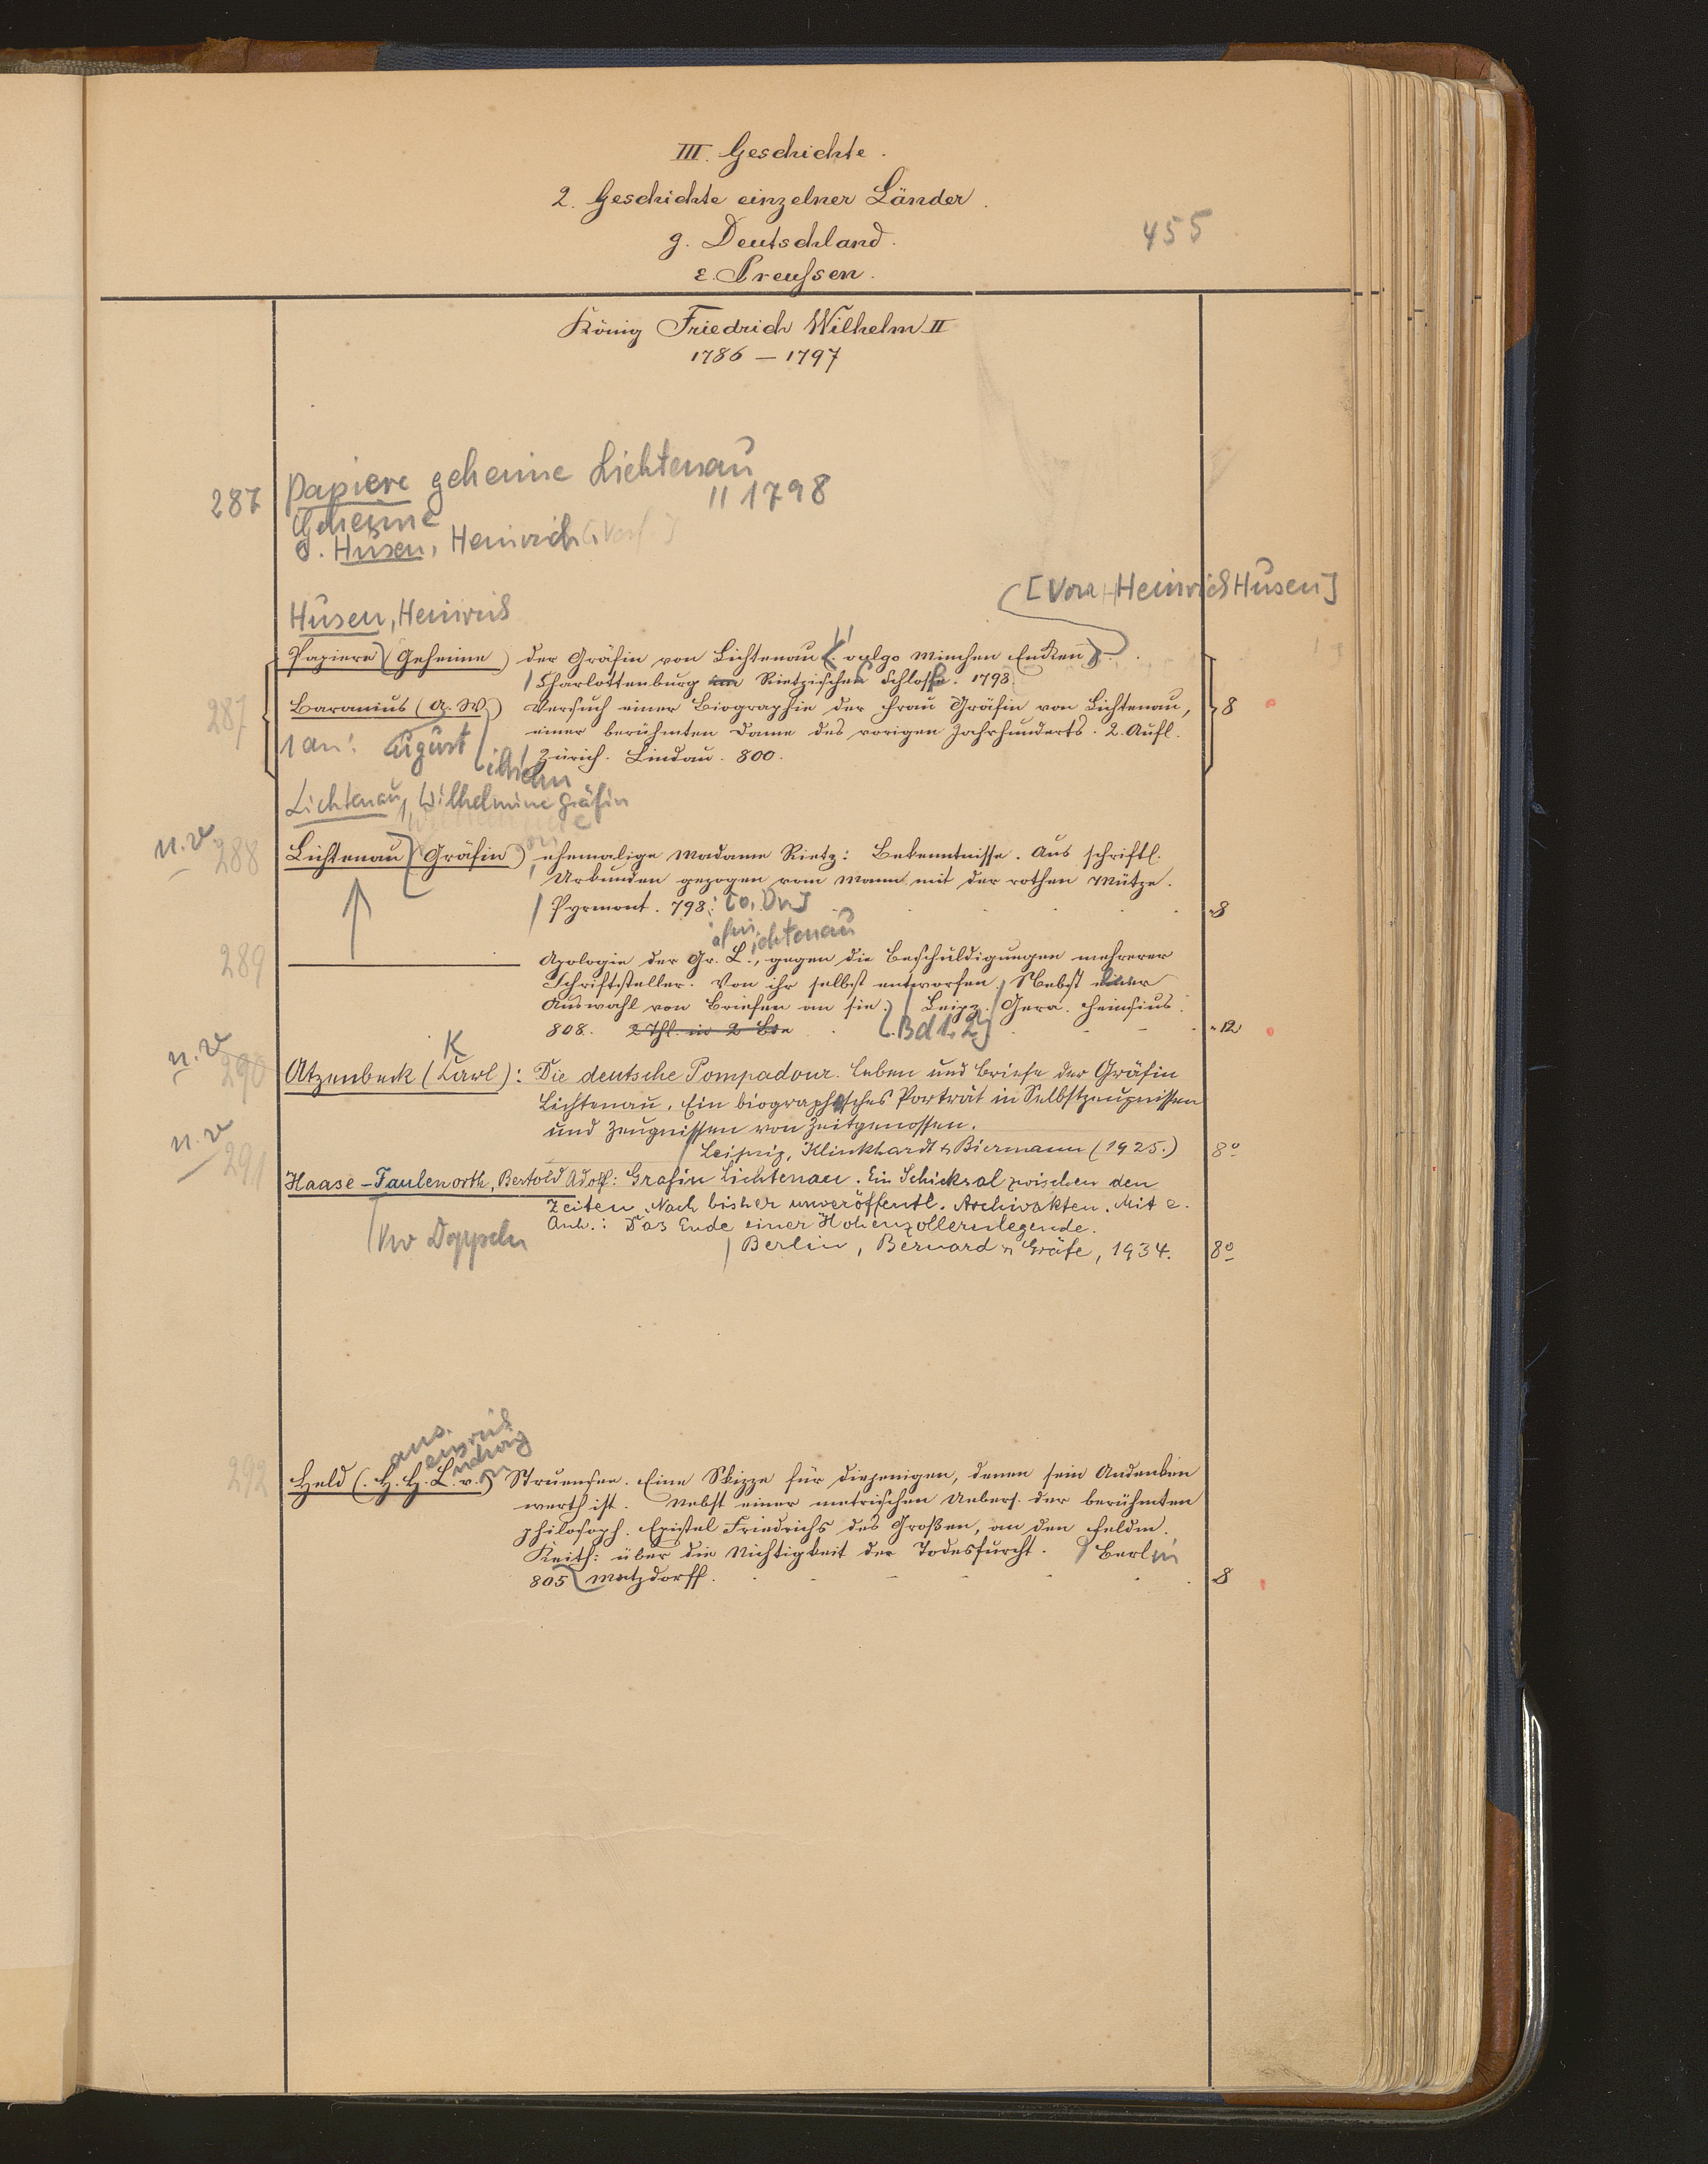 III. Geschichte.
2. Geschichte einzelner Länder.
g. Deutschland.
ε. Preußen.
455
König Friedrich Wilhelm II
1786 – 1797
287 Papiere geheime Lichtenau
" 1798
Geheime
s. Husen, Heinrich [Verf.]
[Von Heinrich Husen]
Husen, Heinrich
Papiere (Geheime) der Gräfin von Lichtenau (vulgo Minchen Enken).
Charlottenburg im Rietzischen Schlosse. 1798
287 Baranius (A. W.) Versuch einer Biographie der Frau Gräfin von Lichtenau, 8
einer berühmten Dame des vorigen Jahrhunderts. 2. Aufl.
1 an: August ilhelm
Zürich. Lindau. 800.
Lichtenau, Wilhelmine Gräfin
n. v. 288 Lichtenau (Gräfin) von, ehemalige Madame Rietz: Bekenntnisse. Aus schriftl.
Urkunden gezogen vom Mann mit der rothen Mütze.
Pyrmont. 798. [o. Dr.] 8
äfin ichtenau
289 Apologie der Gr. L., gegen die Beschuldigungen mehrerer
Schriftsteller. Von ihr selbst entworfen. Nebst einer
Auswahl von Briefen an sie. Leipz. Gera. Heinsius.
808. 2 Thl. in 2 Bde (Bd 1. 2) 12
K
n. v. 290 Atzenbeck (Carl): Die deutsche Pompadour. Leben und Briefe der Gräfin
Lichtenau. Ein biographisches Porträt in Selbstzeugnissen
und Zeugnissen von Zeitgenossen.
Leipzig, Klinkhardt & Biermann (1925.) 8°
n. v. 291 Haase-Faulenorth, Bertold Adolf: Gräfin Lichtenau. Ein Schicksal zwischen den
Zeiten. Nach bisher unveröffentl. Archivakten. Mit e.
Anh.: Das Ende einer Hohenzollernlegende.
Berlin, Bernard & Gräfe, 1934. 8°
Vw Doppeln
ans einrich udwig on
292 Held (H. H. L. v.) Struensee. Eine Skizze für diejenigen, denen sein Andenken
werth ist. Nebst einer metrischen Uebers. der berühmten
philosoph. Epistel Friedrichs des Großen, an den Feldm.
Keith: über die Nichtigkeit der Todesfurcht. Berlin
805 Matzdorff. 8